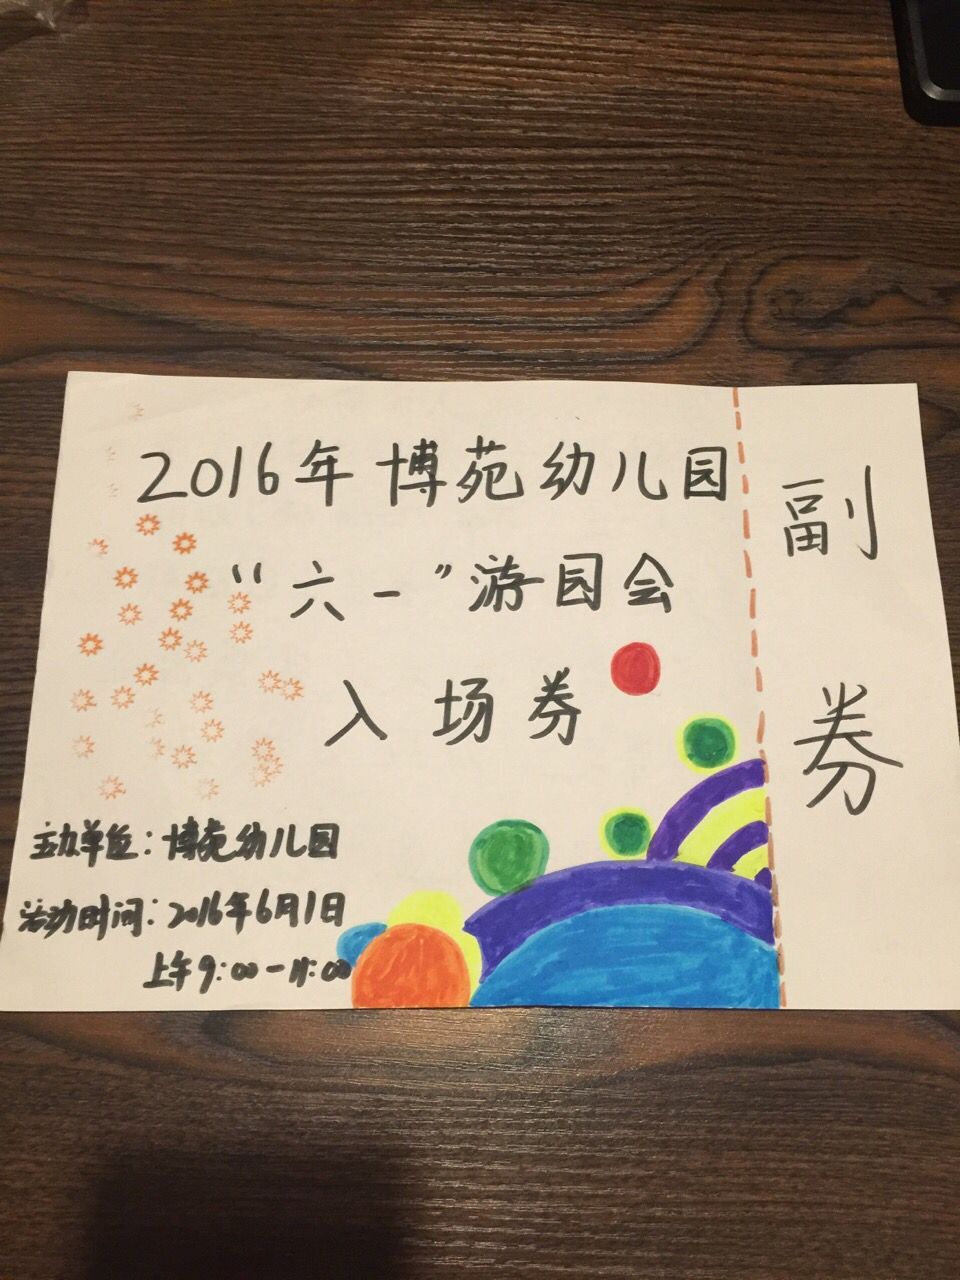 2016年博苑幼儿园
“六一”游园会
入场券
主办单位：博苑幼儿园
活动时间：2016年6月1日
上午9:00-11:00
副券